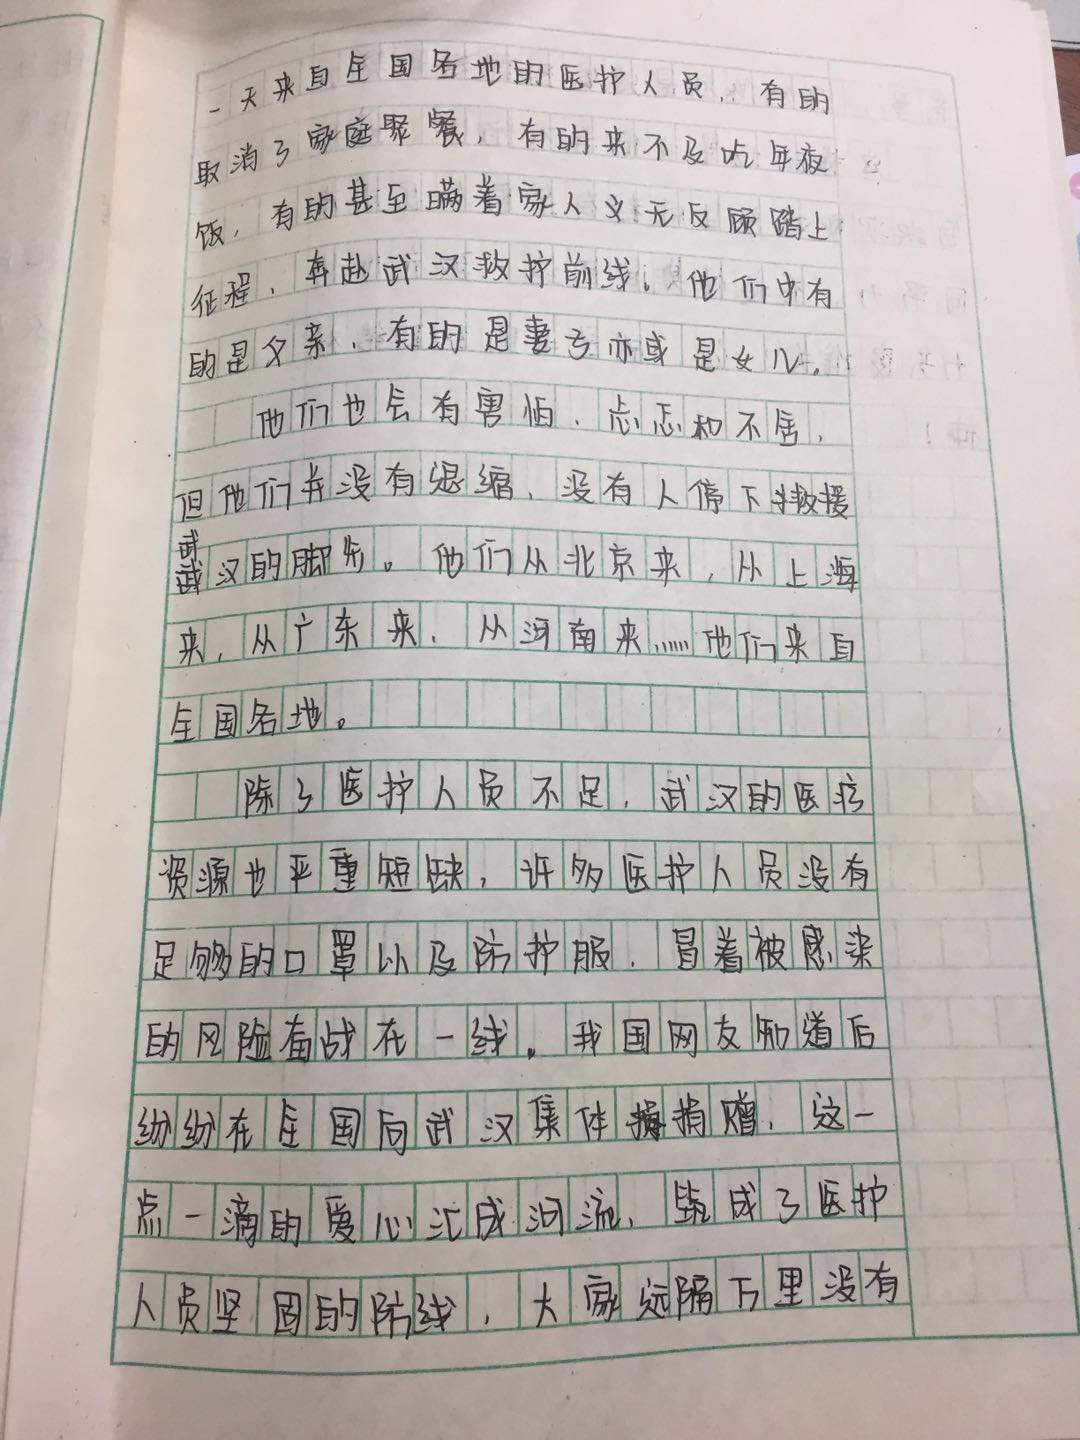 一天来自全国各地的医护人员，有的
取消了家庭聚餐，有的来不及吃年夜
饭，有的甚至瞒着家人义无反顾踏上
征程，奔赴武汉救护前线。他们中有
的是父亲，有的是妻子亦或是女儿。
他们也会有害怕，忐忑和不舍，
但他们并没有退缩，没有人停下救援
武汉的脚步。他们从北京来，从上海
来，从广东来，从河南来……他们来自
全国各地。
除了医护人员不足，武汉的医疗
资源也严重短缺，许多医护人员没有
足够的口罩以及防护服，冒着被感染
的风险奋战在一线。我国网友知道后
纷纷在全国向武汉集体捐赠，这一
点一滴的爱心汇成河流，筑成了医护
人员坚固的防线，大家远隔万里没有